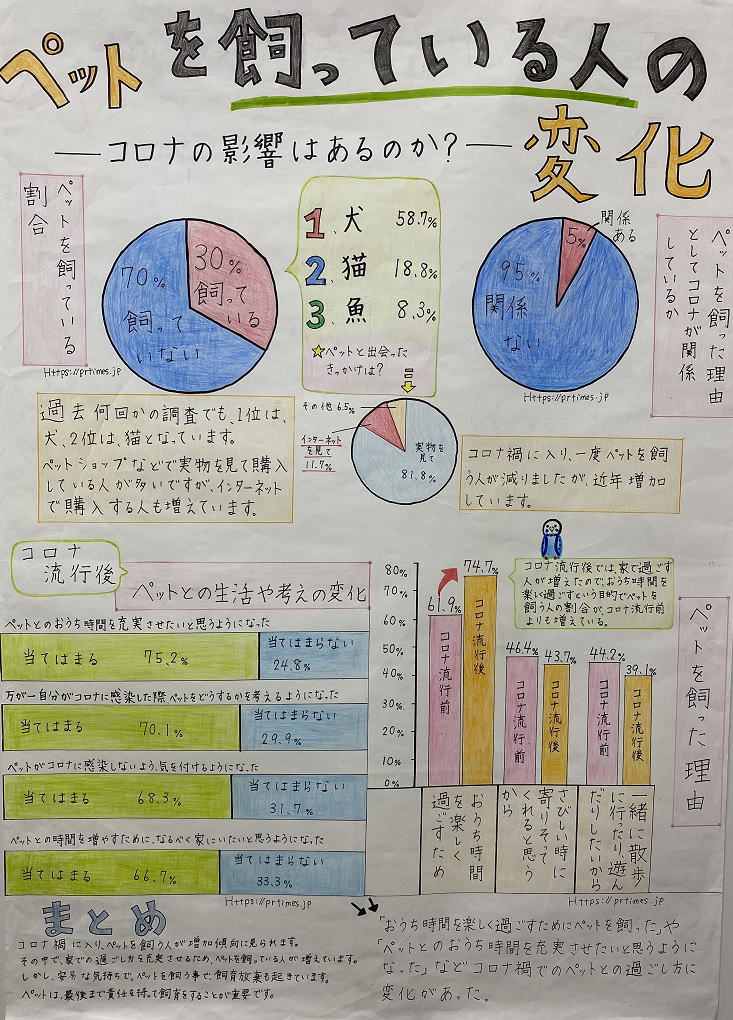 ペットを飼っている人の
変化
―コロナの影響はあるのか?―
ペットを飼っている
割合
70%
飼って
いない
30%
飼って
いる
Https://prtimes.jp
1. 犬 58.7%
2. 猫 18.8%
3. 魚 8.3%
☆ペットと出会った
きっかけは?
その他 6.5%
インターネット
を見て
11.7%
実物を
見て
81.8%
関係
ある
5%
95%
関係
ない
Https://prtimes.jp
ペットを飼った理由
としてコロナが関係
しているか
過去何回かの調査でも、1位は、
犬、2位は、猫となっています。
ペットショップなどで実物を見て購入
している人が多いですが、インターネット
で購入する人も増えています。
コロナ禍に入り、一度ペットを飼
う人が減りましたが、近年増加
しています。
コロナ
流行後
ペットとの生活や考えの変化
ペットとのおうち時間を充実させたいと思うようになった
当てはまる 75.2%
当てはまらない
24.8%
万が一自分がコロナに感染した際ペットをどうするかを考えるようになった
当てはまる 70.1%
当てはまらない
29.9%
ペットがコロナに感染しないよう、気を付けるようになった
当てはまる 68.3%
当てはまらない
31.7%
ペットとの時間を増やすために、なるべく家にいたいと思うようになった
当てはまる 66.7%
当てはまらない
33.3%
Https://prtimes.jp
コロナ流行後では、家で過ごす
人が増えたので、おうち時間を
楽しく過ごすという目的でペットを
飼う人の割合が、コロナ流行前
よりも増えている。
ペットを飼った理由
80%
70%
60%
50%
40%
30%
20%
10%
0%
61.9%
コロナ流行前
74.7%
コロナ流行後
46.4%
コロナ流行前
43.7%
コロナ流行後
44.2%
コロナ流行前
39.1%
コロナ流行後
おうち時間
を楽しく
過ごすため
さびしい時に
寄りそって
くれると思う
から
一緒に散歩
に行たり、遊ん
だりしたいから
Https://prtimes.jp
まとめ
コロナ禍に入り、ペットを飼う人が増加傾向に見られます。
その中で、家での過ごし方を充実させるため、ペットを飼っている人が増えています。
しかし、安易な気持ちで、ペットを飼う事で、飼育放棄も起きています。
ペットは、最後まで責任を持って飼育をすることが重要です。
「おうち時間を楽しく過ごすためにペットを飼った」や
「ペットとのおうち時間を充実させたいと思うように
なった」などコロナ禍でのペットとの過ごし方に
変化があった。